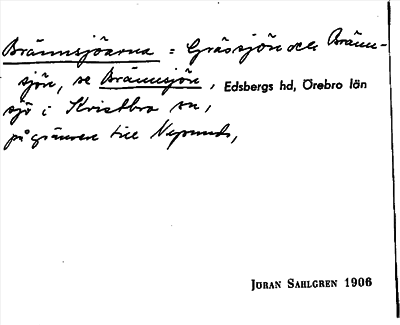 Brännsjöarna = Gråssjön och Bränn-
sjön, se Brännsjön, Edsbergs hd, Örebro län
sjö i Kristbro sn,
på gränsen till Nysunds,
JÖRAN SAHLGREN 1906